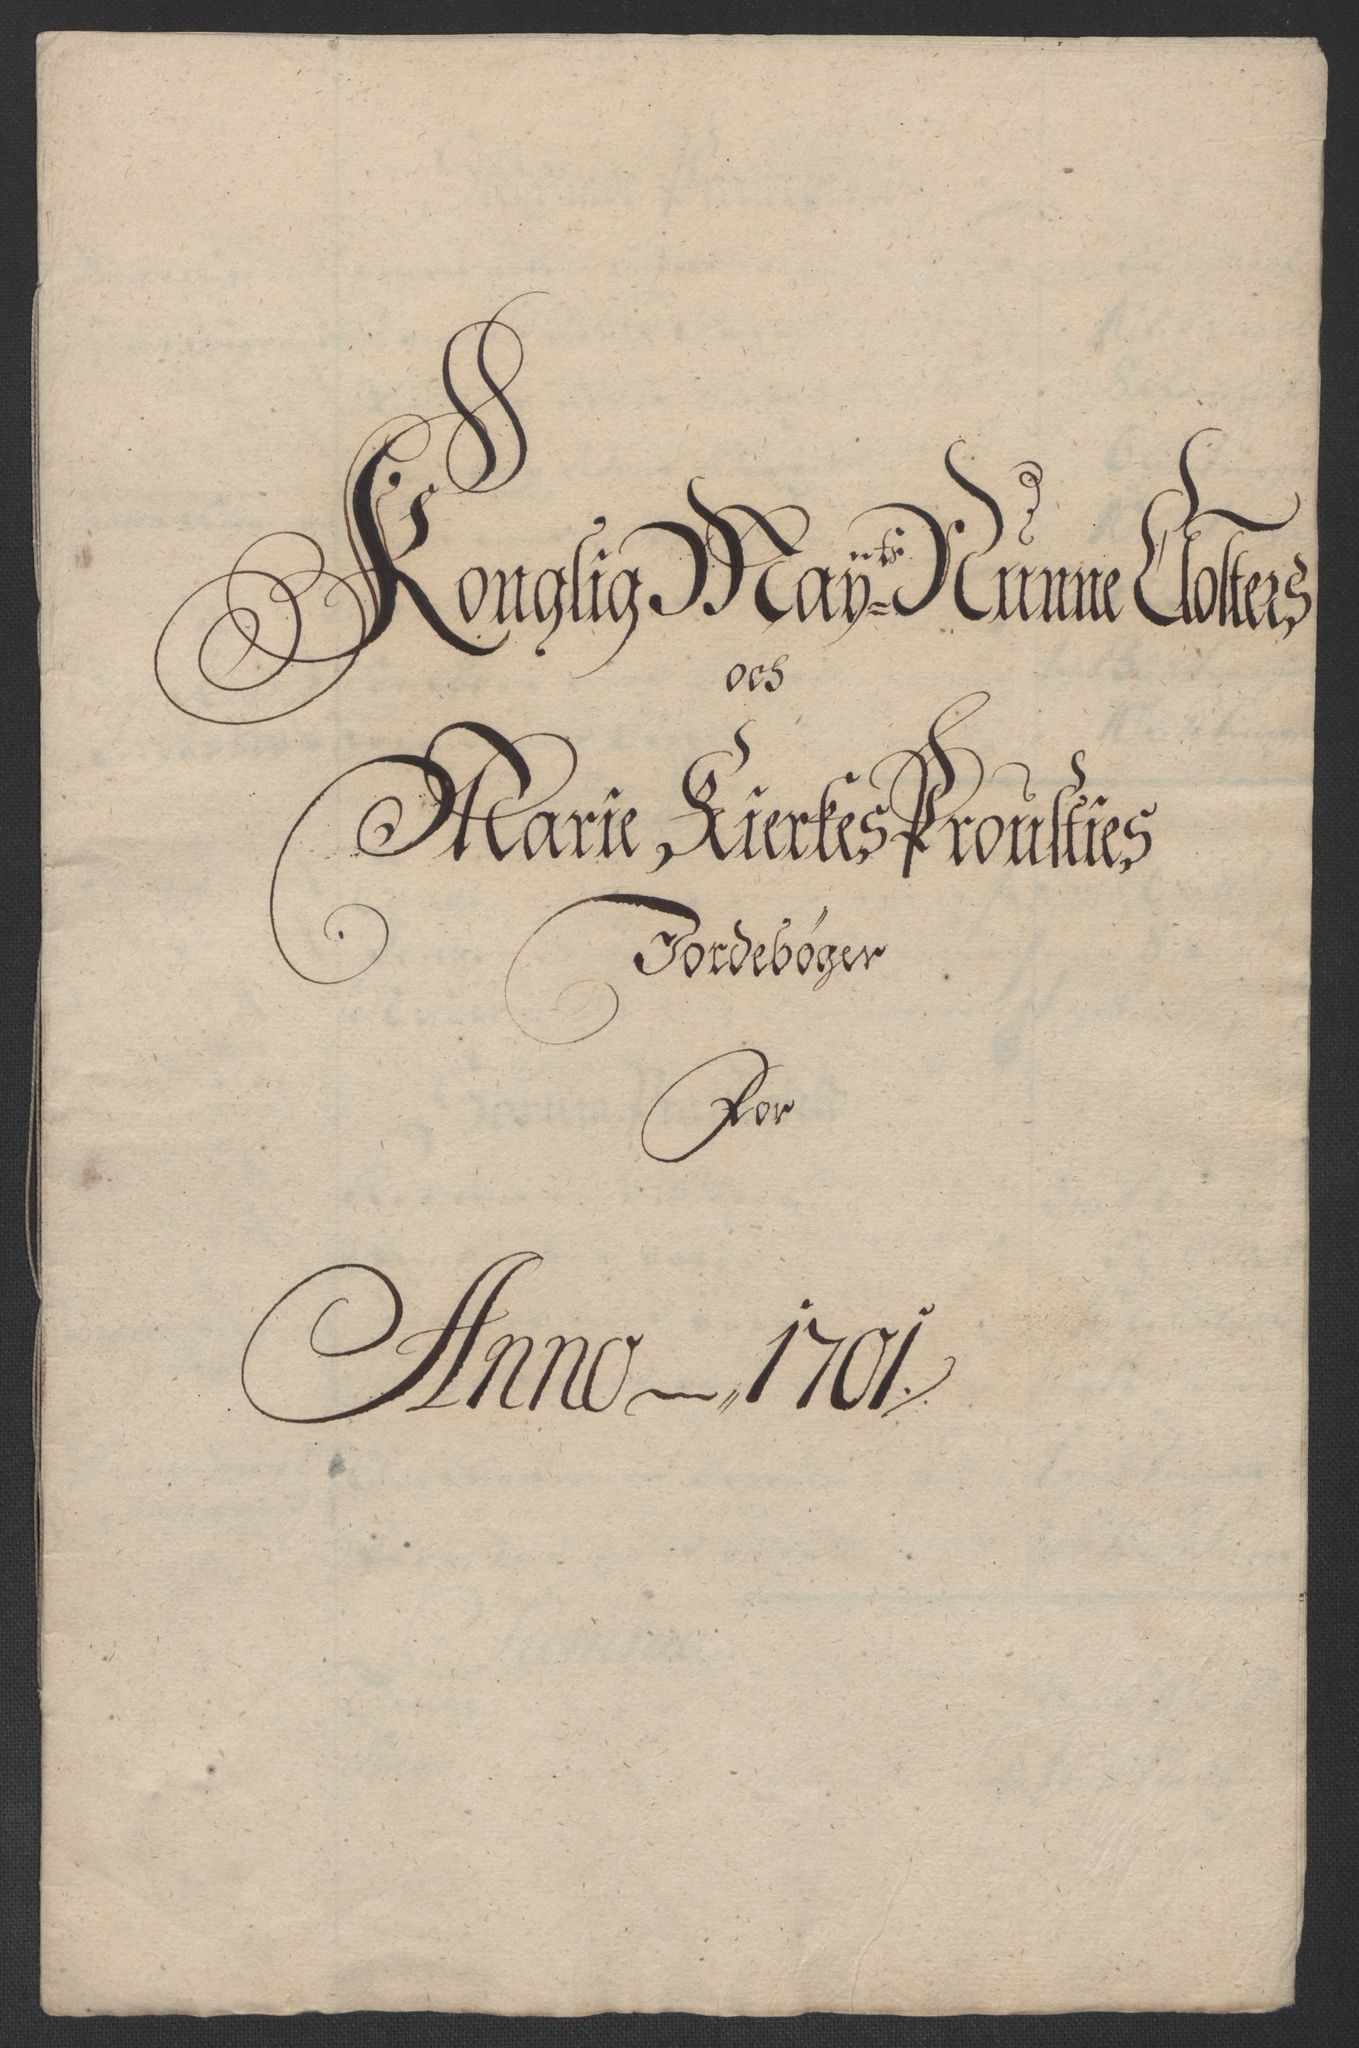 Konglig Mayts= Nunne Closters
och
Marie Kierkes Prousties
Jordebøger
For
Anno 1701.